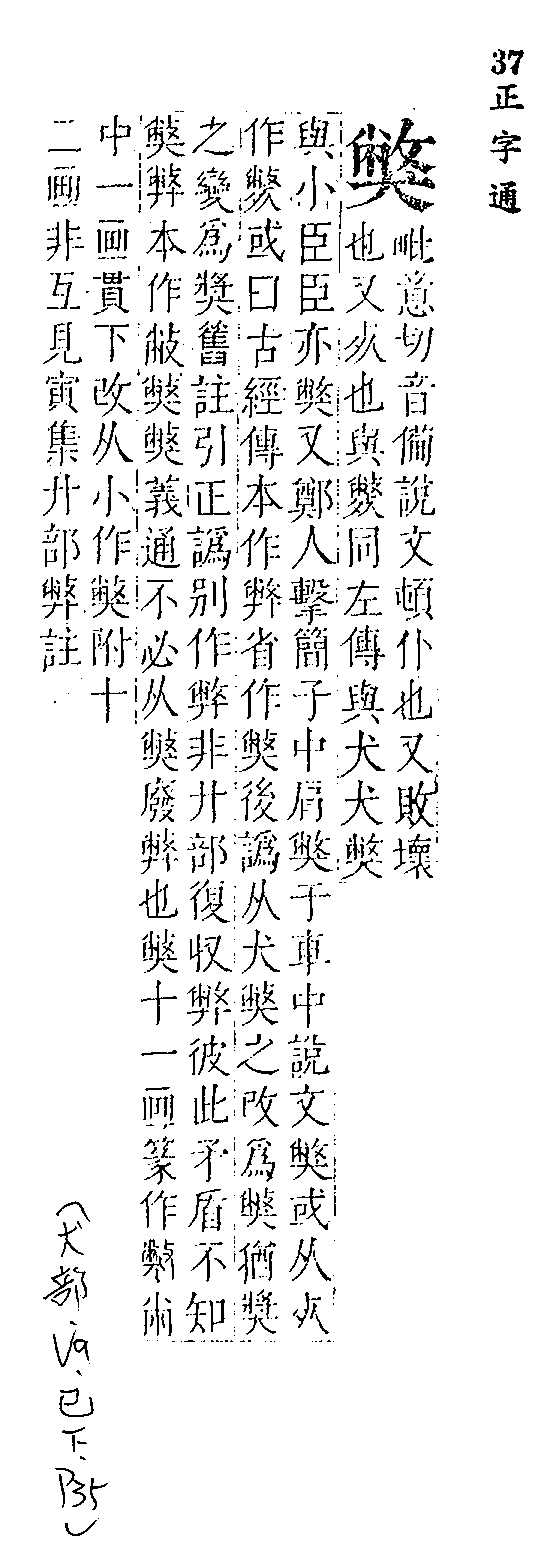 37正字通
獘
毗意切音備說文頓仆也又敗壞
也又死也與斃同左傳與犬犬獘
與小臣臣亦獘又鄭人擊簡子中肩獘于車中說文獘或从死
作斃或曰古經傳本作弊省作獘後譌从犬獘之改爲獘猶獎
之變爲獎舊註引正譌別作弊非廾部復収弊彼此矛盾不知
獘弊本作敝獘獘義通不必从獘廢弊也獘十一画篆作㡀
中一画貫下改从小作獘附十
二画非互見寅集廾部弊註
(犬部.巳下.P35)